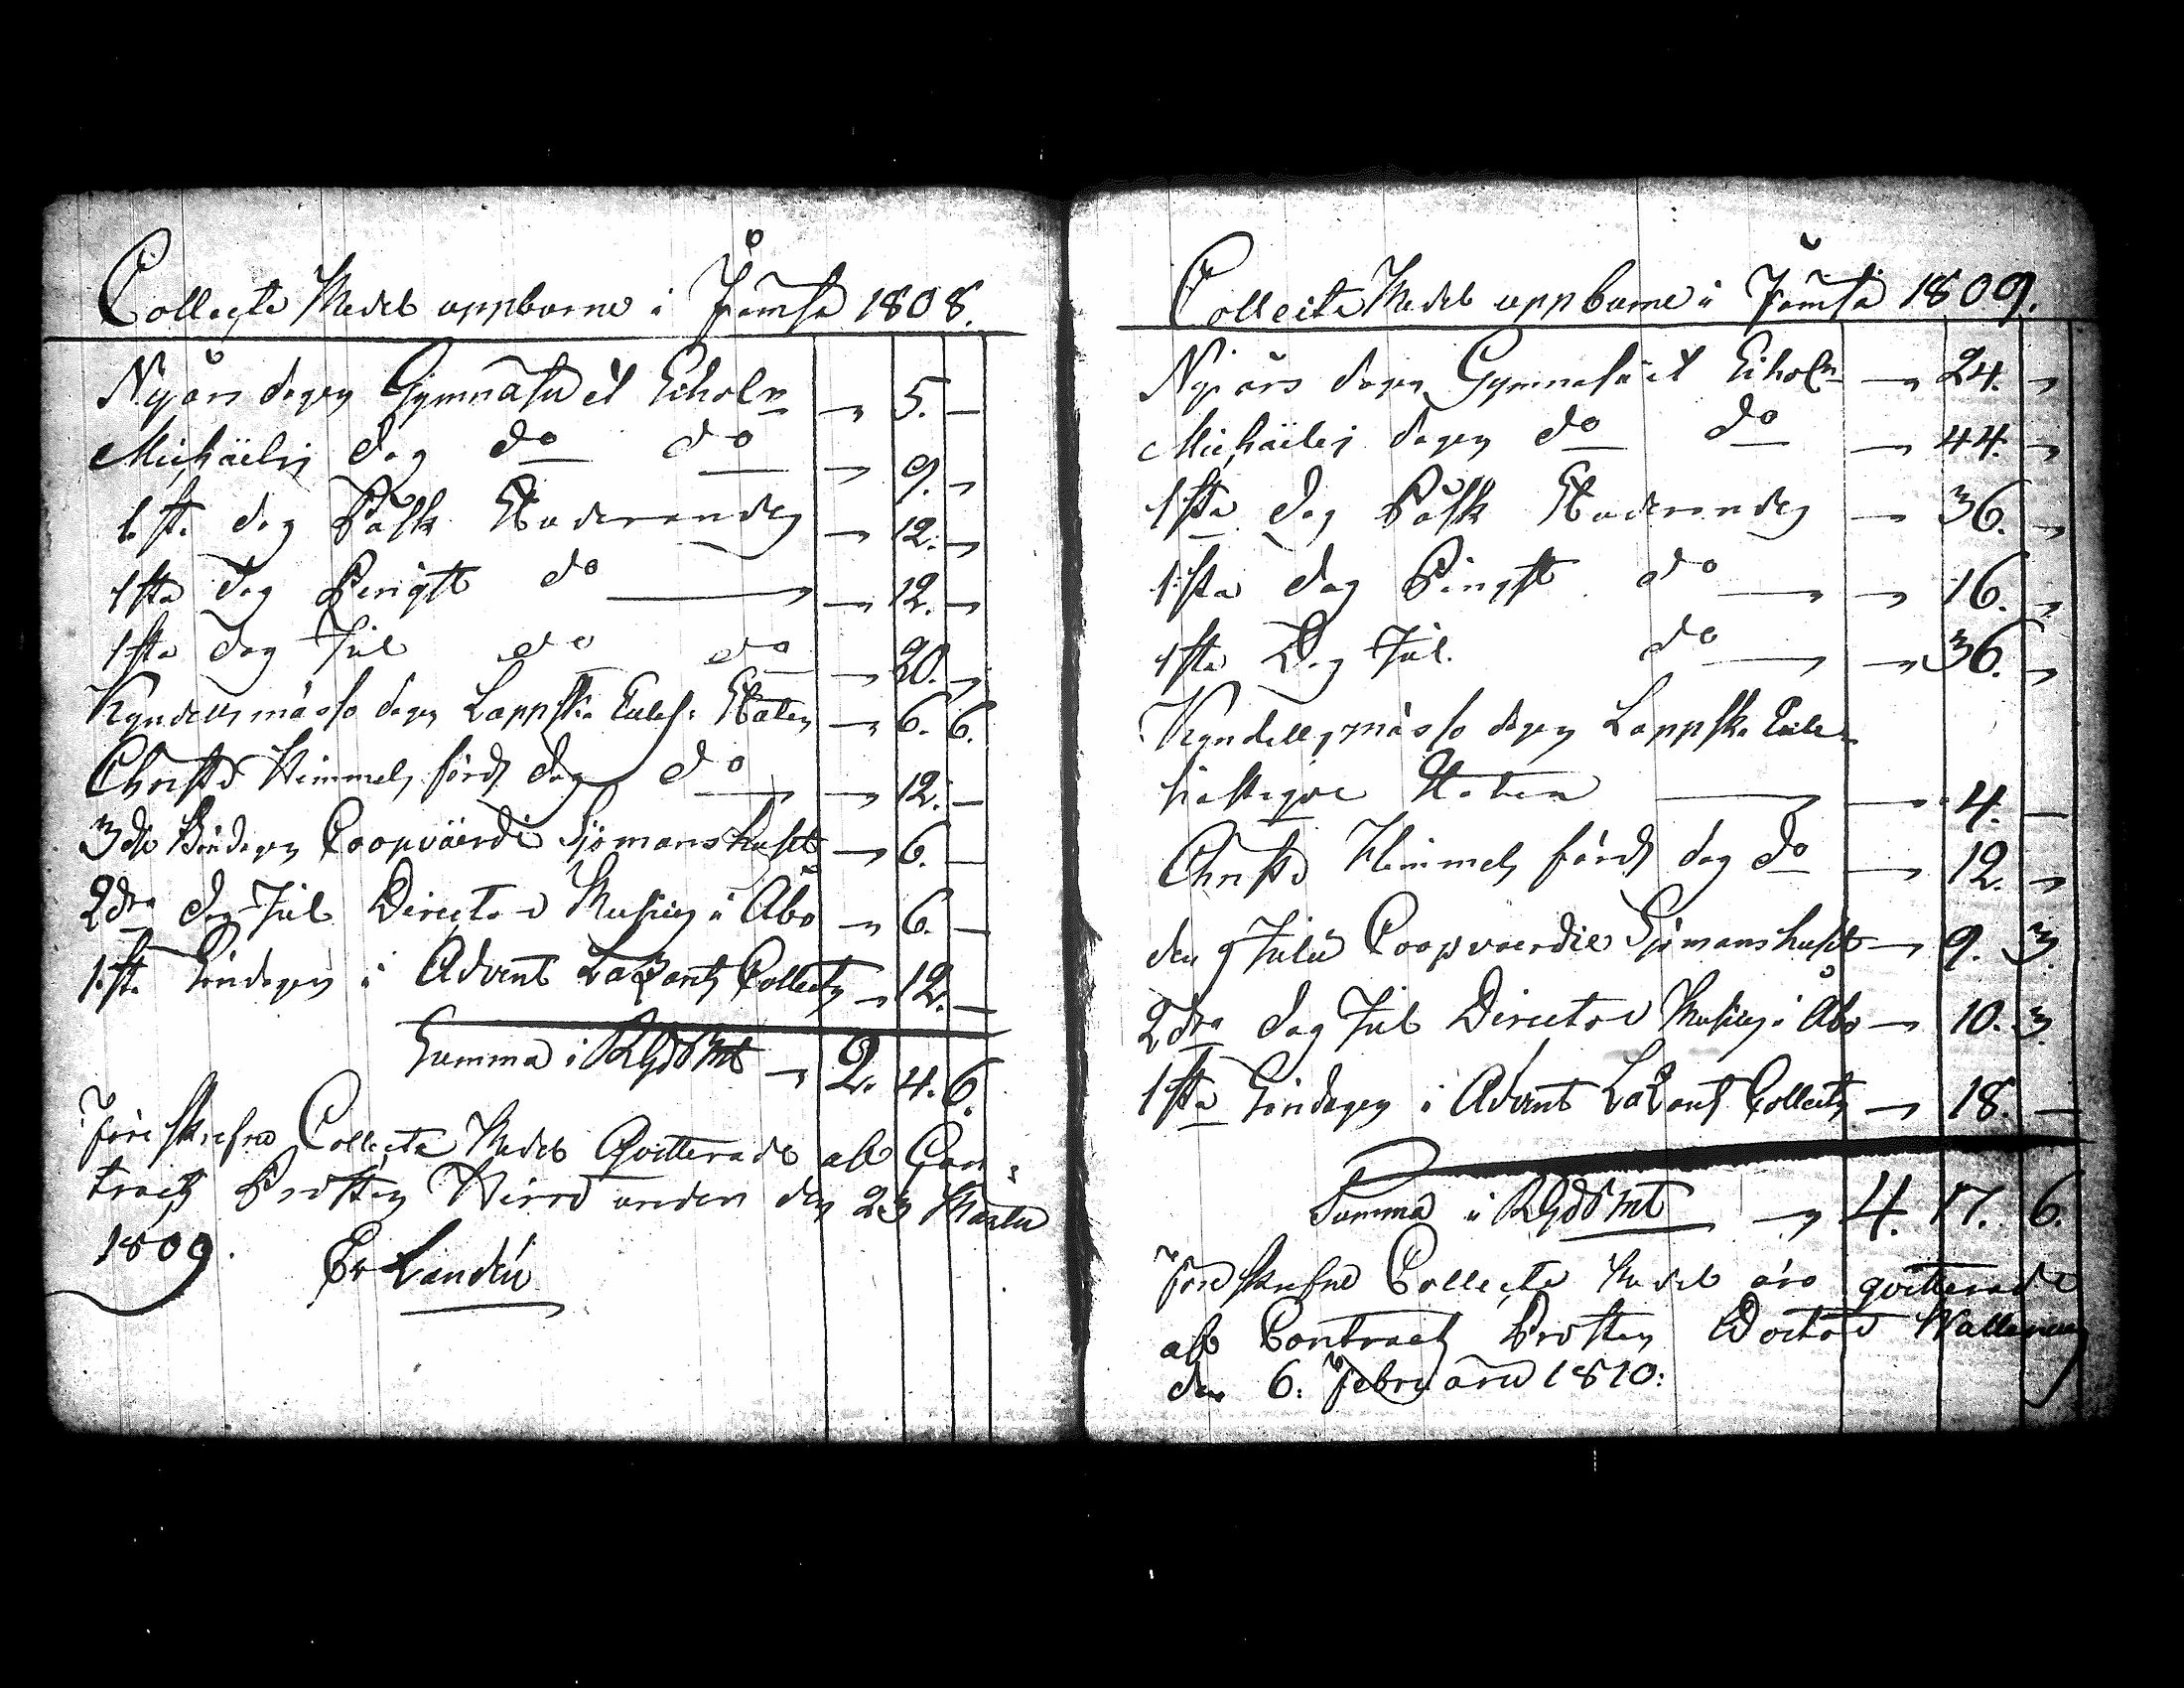 Collecte Medel uppburne i Jämsä 1808.
Nyårs dagen Gymnasii ct Schol: — 5. —
Michäelis dag do do — 9. —
1sta dag Påsk Studerande — 12. —
1sta dag Pingst do — 12. —
1sta dag Jul do do — 20. —
Kyndelsmässo dagen Lappska Eccles: Staten — 6. 6.
Christi Himmelsfärds dag do — 12. —
3die Böndagen Coopvärdi Sjömanshuset — 6. —
2dra dag Jul Director Musices i Åbo — 6. —
1sta Söndagen i Advent Lazarets Collecten — 12. —
Summa i RGdd Mt — 2. 4. 6.
Föreskrefne Collecte Medel Qvitterade af Con-
tracts Prosten Wirro under den 23 Martii
1809. Er Landén
Collecte Medel uppburne i Jämsä 1809.
Nyårs dagen Gymnasii ct Schol: — 24. —
Michäelis dagen do do — 44. —
1sta dag Påsk Studerande — 36. —
1sta dag Pingst do — 16. —
1sta Dag Jul. do — 36. —
Kyndellsmässo dagen Lappska Eccle-
siastique Staten — 4. —
Christi Himmelsfärds dag do — 12. —
den 9 Julii Coopvaerdie Sjömanshuset — 9. 3.
2dra dag Jul Director Musices i Åbo — 10. 3.
1sta Söndagen i Advent Lazarets Collecten — 18. —
Summa i RGdd Mt — 4. 17. 6.
Föreskrefne Collecte Medel äro qvitterade
af Contracts Prosten Doctor Wallenius
den 6. Februarii 1810.